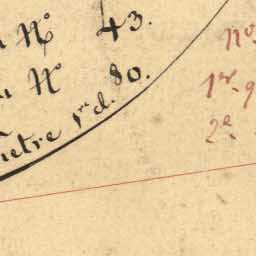 Nº 43.
Nº 80.
1re d.
No.
1er. 9
2e.